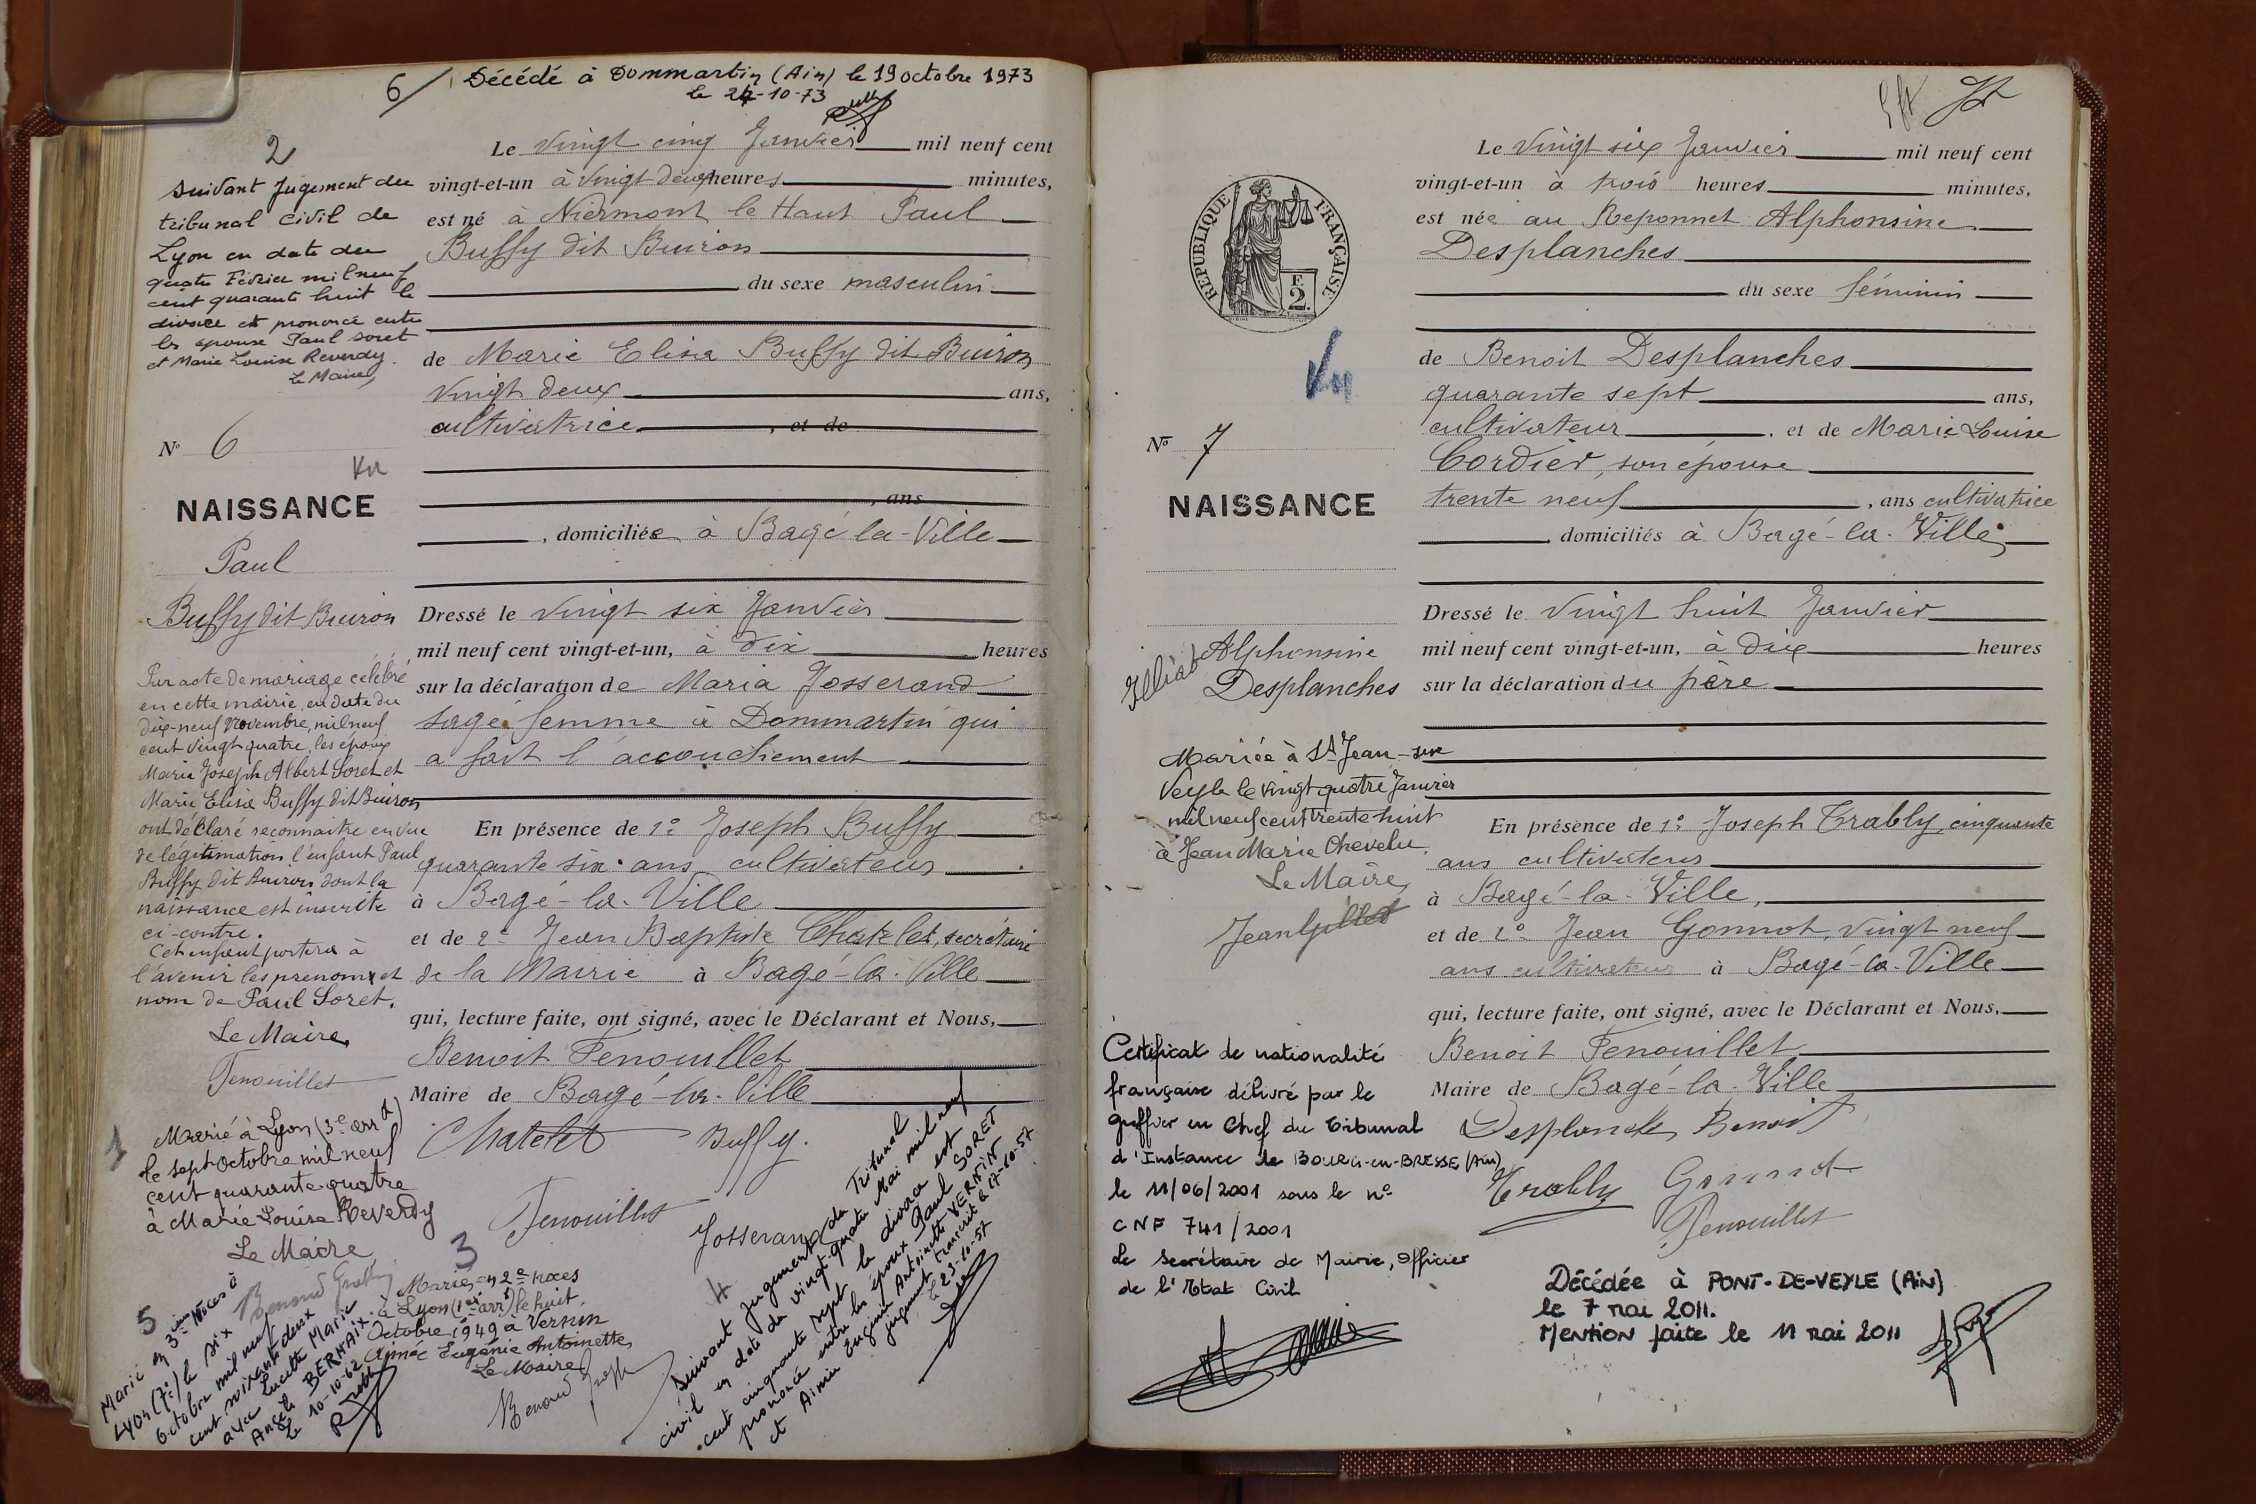 6 Décédé à Dommartin (Ain) le 19 octobre 1973
le 24-10-73
2
Suivant Jugement du
tribunal civil de
Lyon en date du
quatre Février mil neuf
cent quarante huit le
divorce est prononcé entre
les époux Paul Soret
et Marie Louise Reverdy.
Le Maire,
N° 6
Vu
NAISSANCE
Paul
Buffy dit Buiron
Par acte de mariage célébré
en cette mairie, en date du
dix-neuf Novembre, mil neuf
cent vingt quatre, les époux
Marie Joseph Albert Soret et
Marie Elisa Buffy dit Buiron
ont déclaré reconnaitre en vue
de légitimation l'enfant Paul
Buffy dit Buiron dont la
naissance est inscrite
ci-contre.
Cet enfant portera à
l'avenir les prénoms et
nom de Paul Soret.
Le Maire,
Fenouillet
1
Marié à Lyon (3e arrt)
le sept Octobre mil neuf
cent quarante-quatre
à Marie Louise Reverdy
Le Maire
5
Marié en 3ième Noces à
Lyon (7e) le six
Octobre mil neuf
cent soixante deux
avec Lucette Marie
Angèle BERHAIX.
le 10-10-62
Le vingt cinq Janvier mil neuf cent
vingt-et-un à vingt deux heures minutes,
est né à Niermont le Haut Paul
Buffy dit Buiron
du sexe masculin
de Marie Elisa Buffy dit Buiron
vingt deux ans,
cultivatrice, et de
, ans
, domiciliée à Bagé la-Ville
Dressé le vingt six Janvier
mil neuf cent vingt-et-un, à dix heures
sur la déclaration de Maria Josserand
sage femme à Dommartin qui
a fait l'accouchement
En présence de 1° Joseph Buffy
quarante six ans cultivateur
à Bagé-la-Ville
et de 2° Jean Baptiste Chatelet, secrétaire
de la Mairie à Bagé-la-Ville
qui, lecture faite, ont signé, avec le Déclarant et Nous,
Benoit Fenouillet
Maire de Bagé-la-Ville
Chatelet Buffy.
Fenouillet Josserand
3
Marié en 2e noces
à Lyon (1er arrt) le huit
Octobre 1949 à Vernin
Aimée Eugénie Antoinette
Le Maire
4
Suivant Jugement du Tribunal
civil en date du vingt-quatre Mai mil neuf
cent cinquante sept le divorce est
prononcé entre les époux Paul SORET
et Aimée Eugénie Antoinette VERNIN
Jugement transcrit le 17-10-57
le 23-10-57
RÉPUBLIQUE FRANÇAISE
E
2.
Vu
N° 7
NAISSANCE
Illiat
Alphonsine
Desplanches
Mariée à St Jean-sur
Veyle le vingt quatre Janvier
mil neuf cent trente huit
à Jean Marie Chevelu.
Le Maire,
Certificat de nationalité
française délivré par le
greffier en Chef du Tribunal
d'Instance de BOURG-en-BRESSE (Ain)
le 11/06/2001 sous le n°
CNF 741/2001
Le Secrétaire de Mairie, Officier
de l'Etat Civil
Le vingt six Janvier mil neuf cent
vingt-et-un à trois heures minutes,
est née au Reponnet Alphonsine
Desplanches
du sexe féminin
de Benoit Desplanches
quarante sept ans,
cultivateur, et de Marie Louise
Cordier, son épouse
trente neuf, ans cultivatrice
domiciliés à Bagé-la-Ville,
Dressé le vingt huit Janvier
mil neuf cent vingt-et-un, à dix heures
sur la déclaration du père
En présence de 1° Joseph Trably, cinquante
ans cultivateur
à Bagé-la-Ville,
et de 2° Jean Gonnot, vingt neuf
ans cultivateur à Bagé-la-Ville
qui, lecture faite, ont signé, avec le Déclarant et Nous,
Benoit Fenouillet
Maire de Bagé-la-Ville
Desplanches Benoit
Trably Gonnot
Fenouillet
Décédée à PONT-DE-VEYLE (AIN)
le 7 mai 2011.
MENTION faite le 11 mai 2011